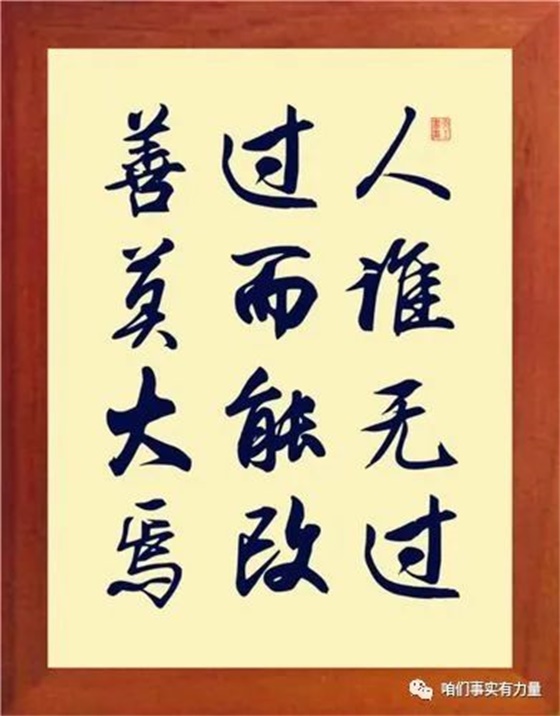 人谁无过
过而能改
善莫大焉
咱们事实有力量